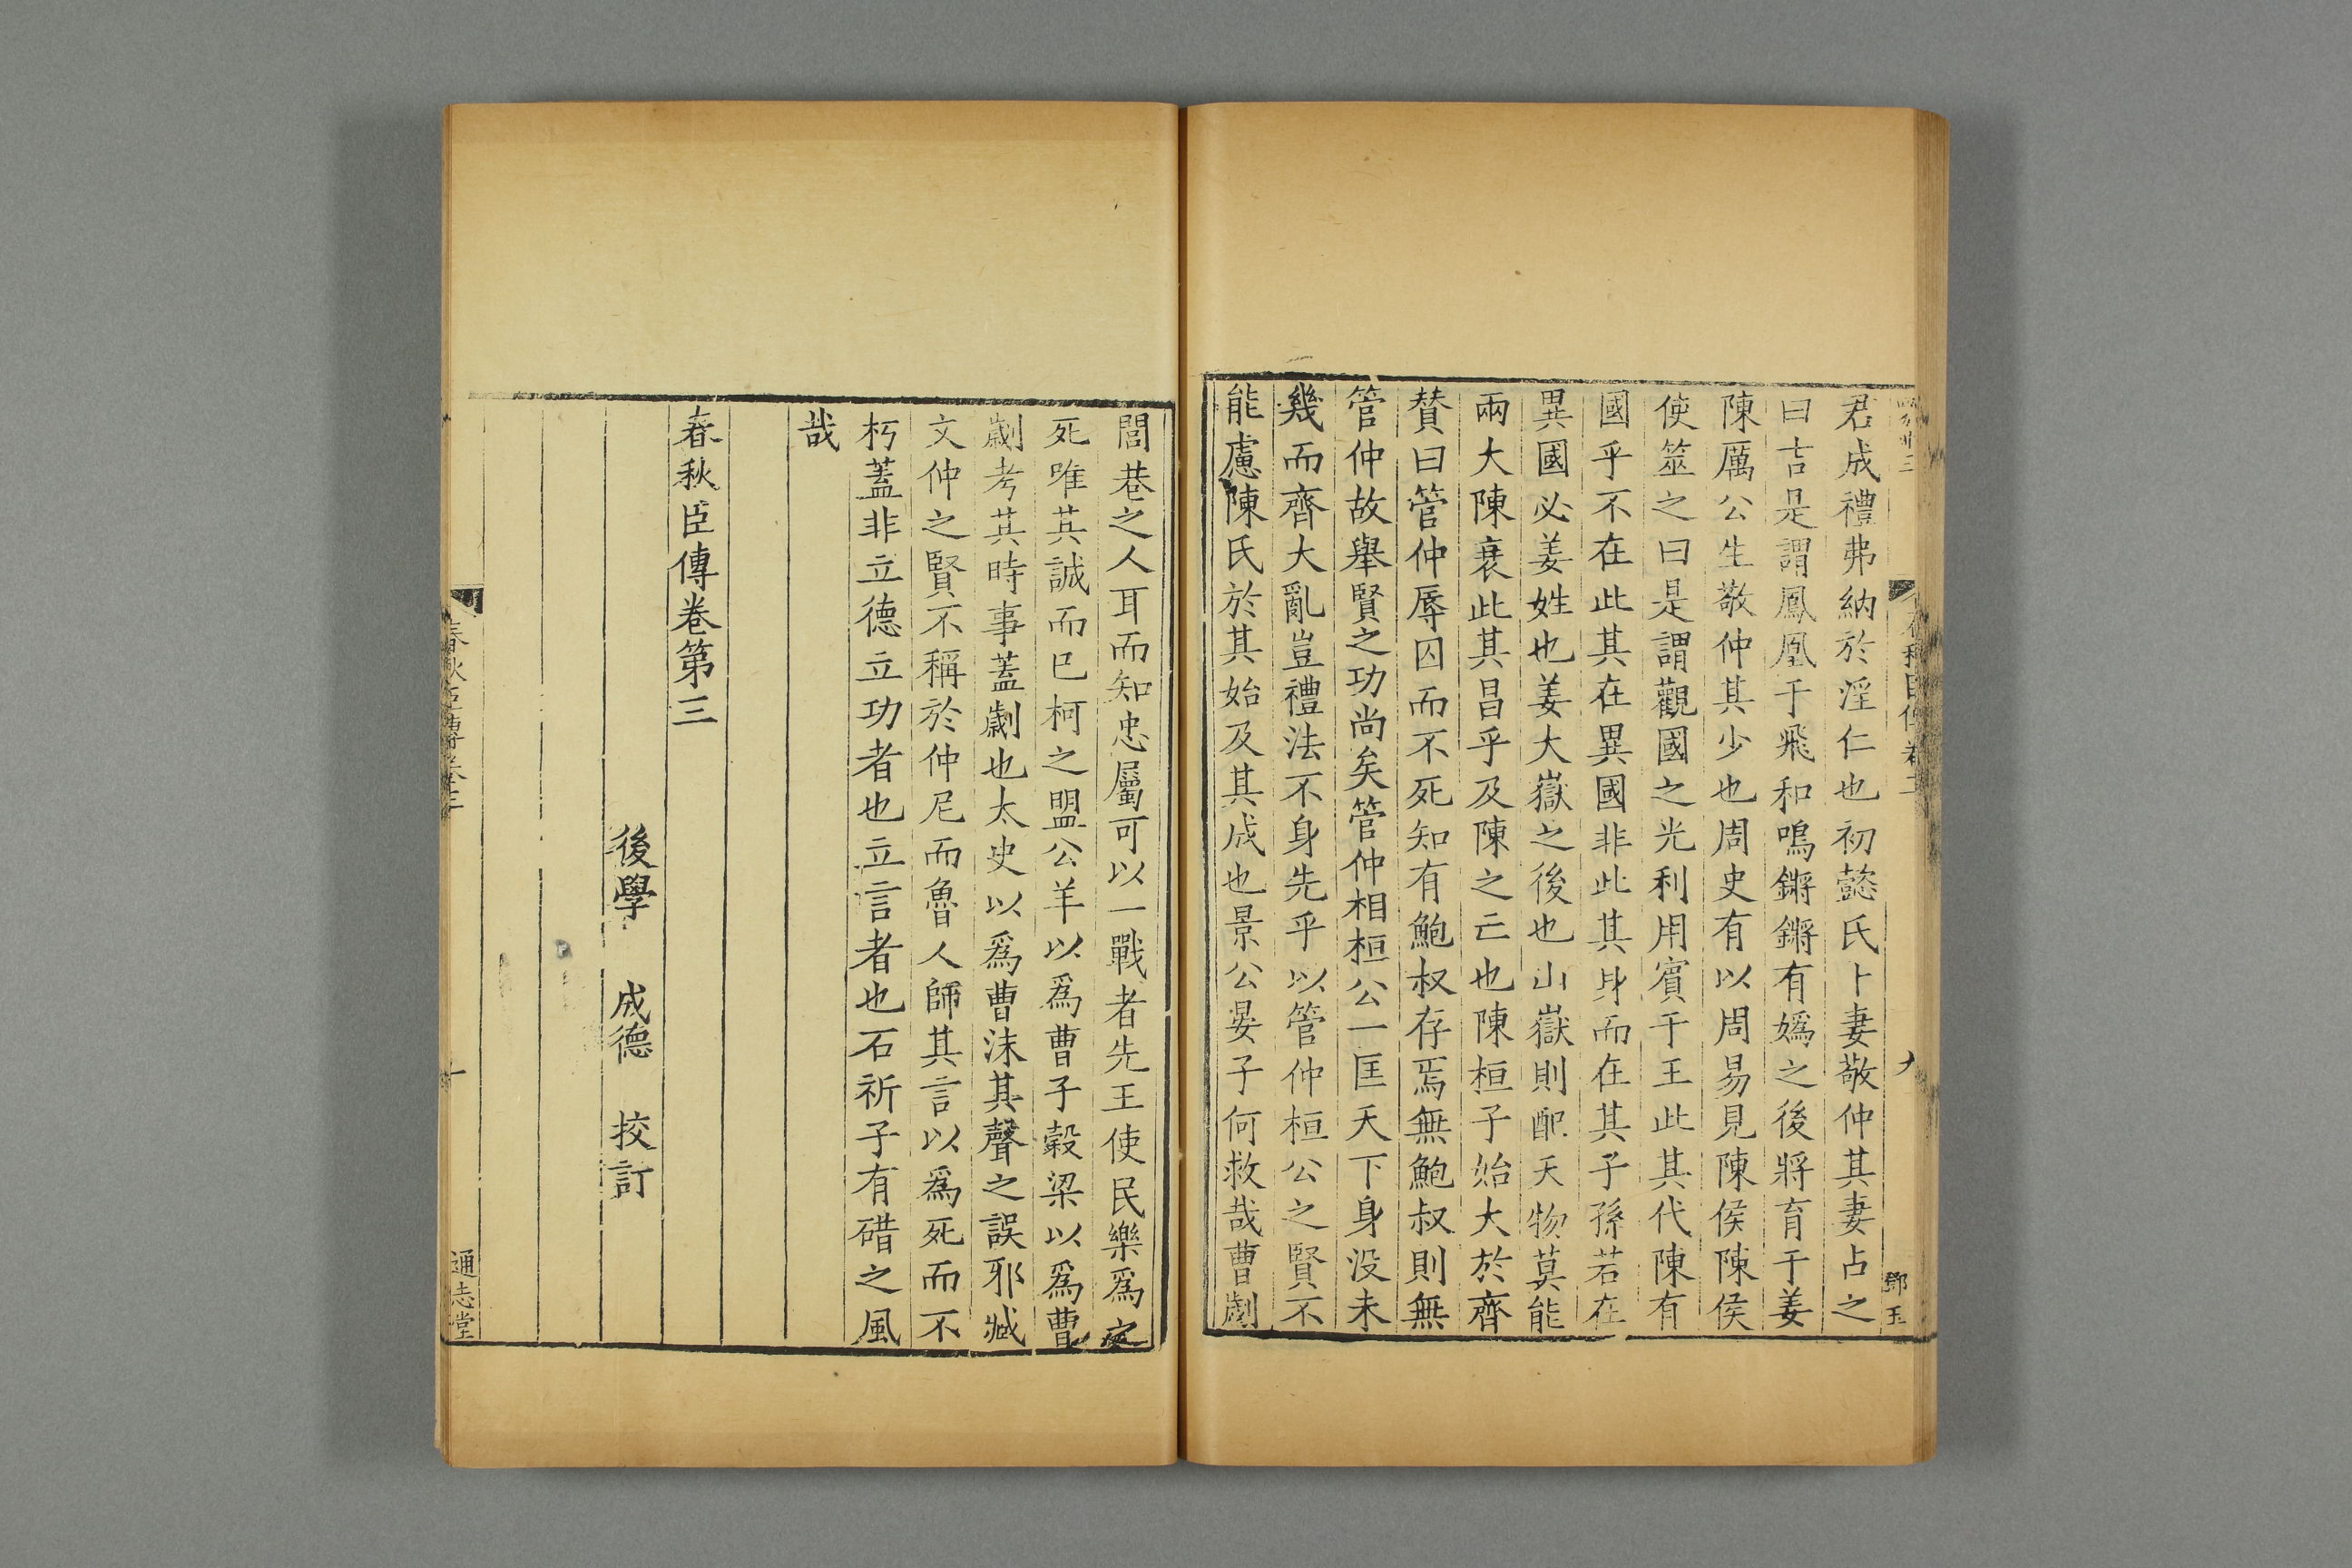 君成禮弗納於淫仁也初懿氏卜妻敬仲其妻占之
曰吉是謂鳳凰于飛和鳴鏘鏘有嬀之後將育于姜
陳厲公生敬仲其少也周史有以周易見陳侯陳侯
使筮之曰是謂觀國之光利用賓于王此其代陳有
國乎不在此其在異國非此其身而在其子孫若在
異國必姜姓也姜大嶽之後也山嶽則配天物莫能
兩大陳衰此其昌乎及陳之亡也陳桓子始大於齊
賛曰管仲辱囚而不死知有鮑叔存焉無鮑叔則無
管仲故舉賢之功尚矣管仲相桓公一匡天下身没未
幾而齊大亂豈禮法不身先乎以管仲桓公之賢不
能慮陳氏於其始及其成也景公晏子何救哉曹劌
鄧玉
閭巷之人耳而知忠屬可以一戰者先王使民樂爲之
死唯其誠而已柯之盟公羊以爲曹子穀梁以爲曹
劌考其時事蓋劌也太史以爲曹沫其聲之誤邪臧
文仲之賢不稱於仲尼而魯人師其言以爲死而不
朽蓋非立德立功者也立言者也石祈子有碏之風
哉
春秋臣傳卷第三
後學 成德 挍訂
春秋臣傳卷三
通志堂